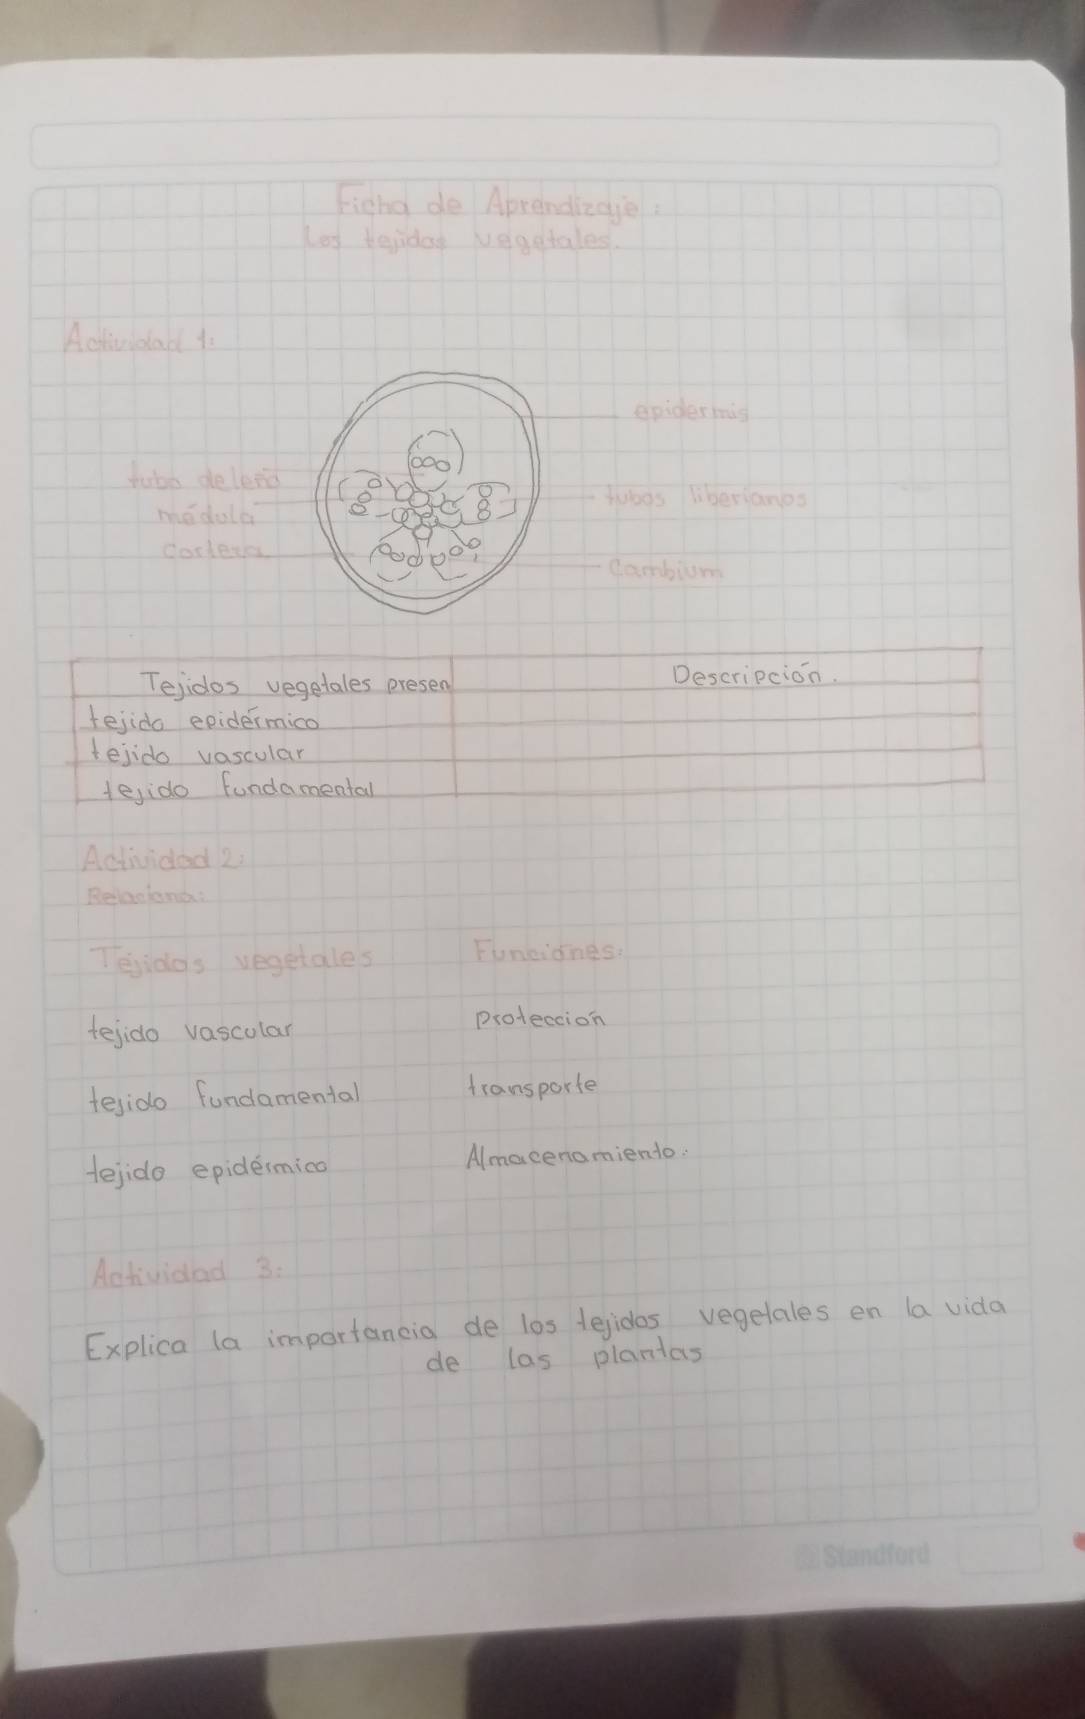 Ficha de Aprendizaje:
Los tejidos vegetales.
Actividad 1:
epidermis
tubo de leño
tubos liberianos
médula
corteza
Cambium
Tejidos vegetales presen
Descripción.
tejido epidérmico
tejido vascular
tejido fundamental
Actividad 2:
Relaciona:
Tejidos vegetales
Funciones:
tejido vascular
protección
tejido fundamental
transporte
tejido epidérmico
Almacenamiento.
Actividad 3:
Explica la importancia de los tejidos vegetales en la vida
de las plantas
Standford